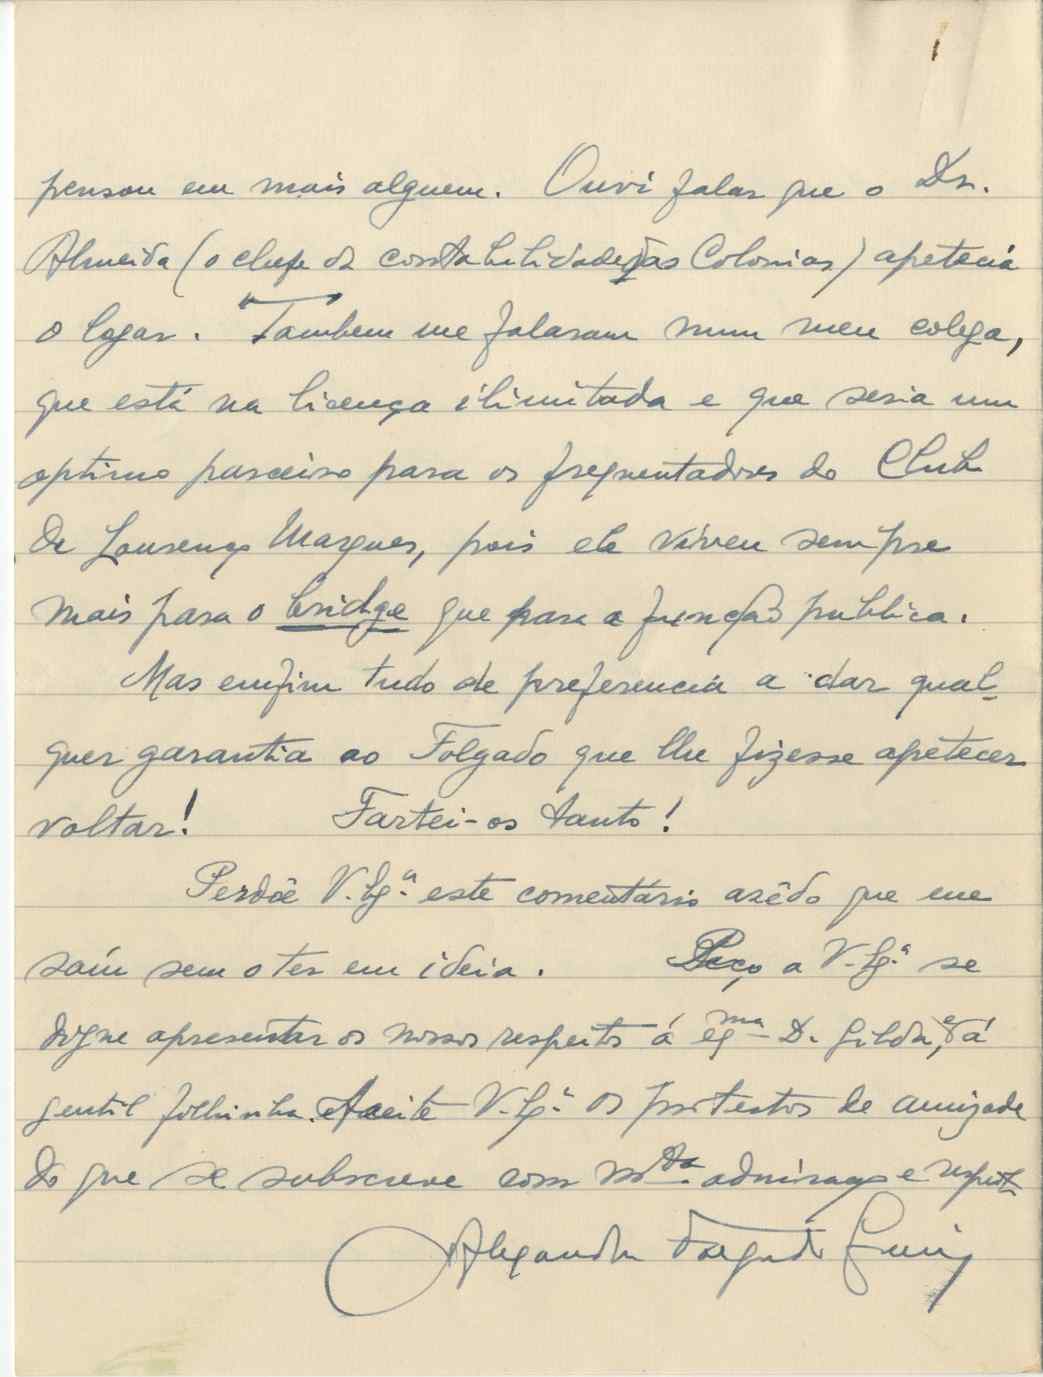 pensou em mais alguem. Ouvi falar que o Dr.
Almeida (o chefe da contabilidade das Colonias) apetecia
o logar. Tambem me falaram num meu colega,
que está na licença ilimitada e que seria um
optimo parceiro para os frequentadores do Club
de Lourenço Marques, pois ele viveu sempre
mais para o bridge que para a função publica.
Mas emfim tudo de preferencia a dar qual-
quer garantia ao Folgado que lhe fizesse apetecer
voltar! Fartei-os tanto!
Perdôe V. Exª. este comentário azêdo que me
saíu sem o ter em ideia. Peço a V. Exª. se
digne apresentar os nossos respeitos á exma D. Gilda, e á
gentil filhinha. Aceite V. Exª. os protestos de amizade
do que se subscreve com mta. admiração e respeito